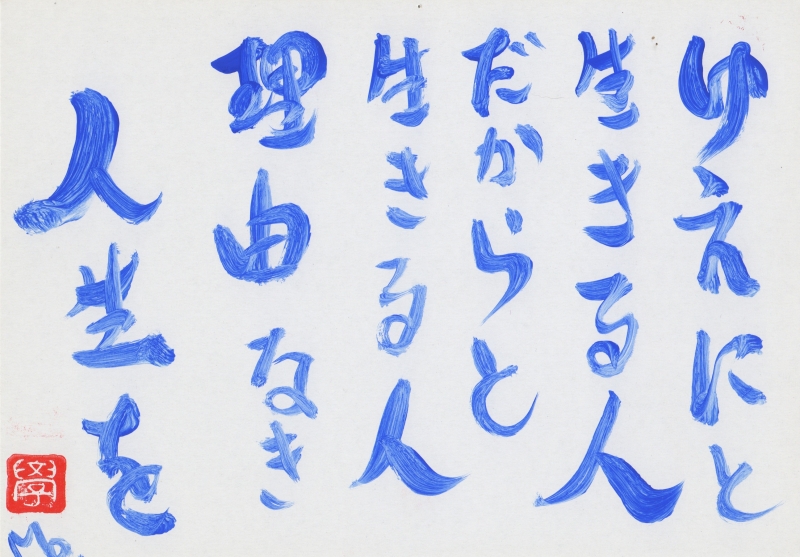 ゆえにと
生きる人
だからと
生きる人
理由なき
人生を
學